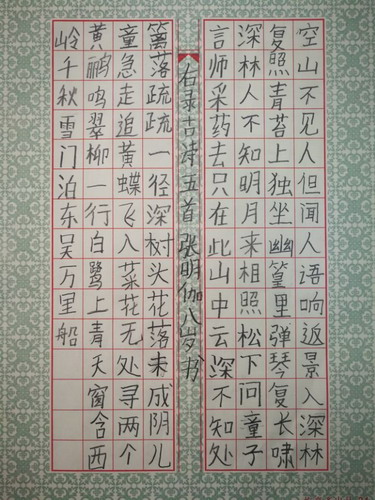 空山不见人但闻人语响返景入深林
复照青苔上独坐幽篁里弹琴复长啸
深林人不知明月来相照松下问童子
言师采药去只在此山中云深不知处
篱落疏疏一径深树头花落未成阴儿
童急走追黄蝶飞入菜花无处寻两个
黄鹂鸣翠柳一行白鹭上青天窗含西
岭千秋雪门泊东吴万里船
右录古诗五首 张明伽八岁书